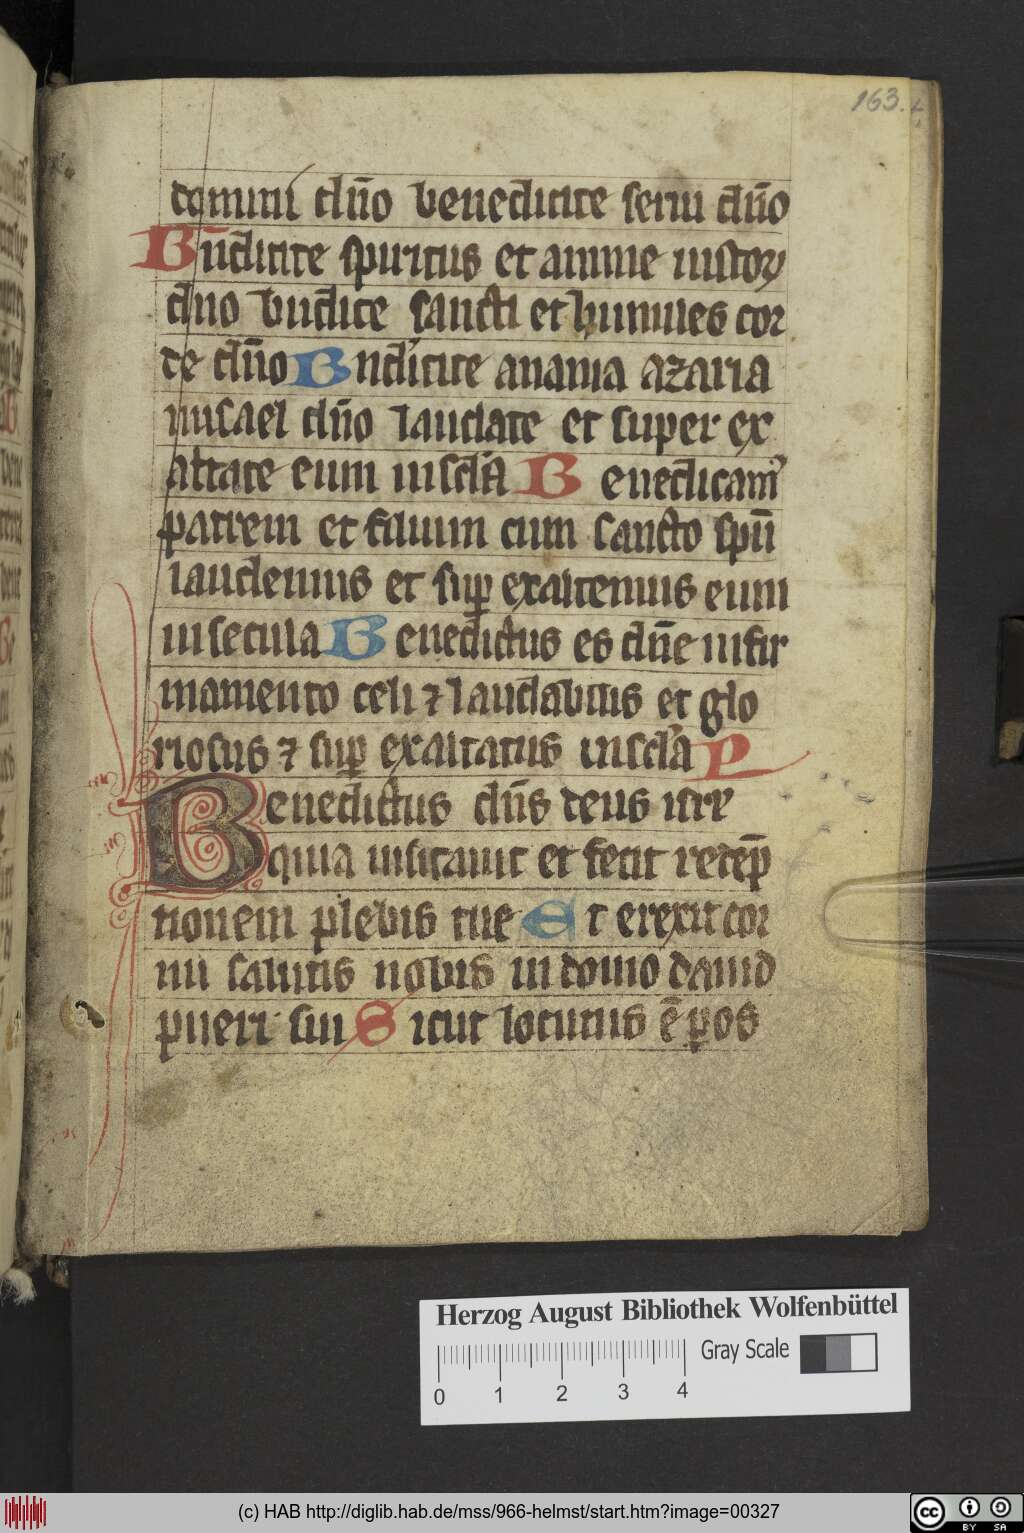 163.
domini dn̄o benedicite serui dn̄o
Bn̄dicite spiritus et anime iustoꝝ
dn̄o bn̄dicite sancti et humiles cor
de dn̄o Bn̄dicite anania azaria
misael dn̄o laudate et super ex
altate eum in scl̄a Benedicamꝰ
patrem et filium cum sancto spū
laudemus et suꝑ exaltemus eum
in secula Benedictus es dn̄e in fir
mamento celi ⁊ laudabilis et glo
riosus ⁊ suꝑ exaltatus in scl̄a P
Benedictus dn̄s deus isrł
quia uisitauit et fecit redēp
tionem plebis sue Et erexit cor
nu salutis nobis in domo dauid
pueri sui Sicut locutus ē ꝑ os
Herzog August Bibliothek Wolfenbüttel
Gray Scale
0 1 2 3 4
(c) HAB http://diglib.hab.de/mss/966-helmst/start.htm?image=00327
cc BY SA